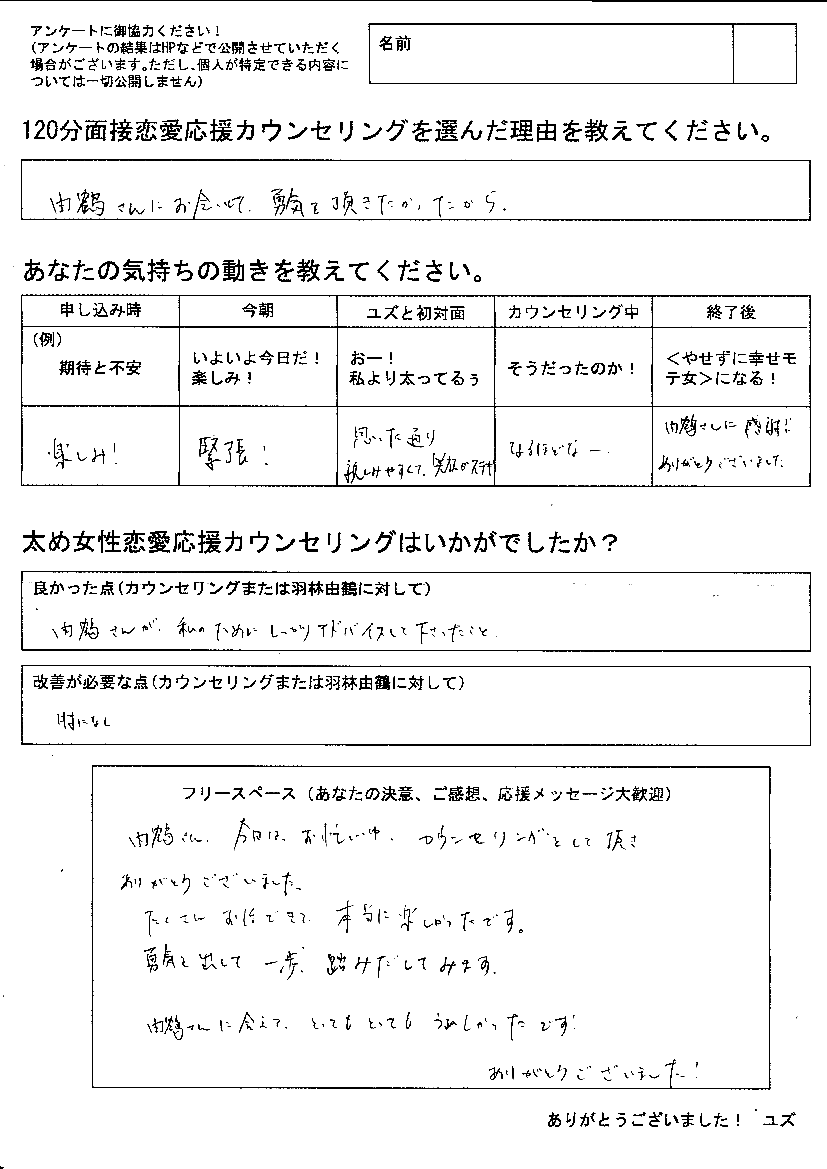 アンケートに御協力ください！
（アンケートの結果はHPなどで公開させていただく
場合がございます。ただし、個人が特定できる内容に
ついては一切公開しません）
名前
120分面接恋愛応援カウンセリングを選んだ理由を教えてください。
由鶴さんにお会いして、勇気を頂きたかったから。
あなたの気持ちの動きを教えてください。
申し込み時 今朝 ユズと初対面 カウンセリング中 終了後
（例）
期待と不安
いよいよ今日だ！
楽しみ！
おー！
私より太ってるぅ
そうだったのか！
＜やせずに幸せモ
テ女＞になる！
楽しみ！
緊張！
思った通り
親しみやすくて、笑顔がステキ
なるほどなー
由鶴さんに感謝!!
ありがとうございました
太め女性恋愛応援カウンセリングはいかがでしたか？
良かった点（カウンセリングまたは羽林由鶴に対して）
由鶴さんが、私のためにしっかりアドバイスして下さったこと。
改善が必要な点（カウンセリングまたは羽林由鶴に対して）
特になし
フリースペース（あなたの決意、ご感想、応援メッセージ大歓迎）
由鶴さん、今日は、お忙しい中、カウンセリングをして頂き
ありがとうございました。
たくさんお話できて、本当に楽しかったです。
勇気を出して一歩、踏みだしてみます。
由鶴さんに会えて、とってもとってもうれしかったです!
ありがとうございました!
ありがとうございました！ ユズ